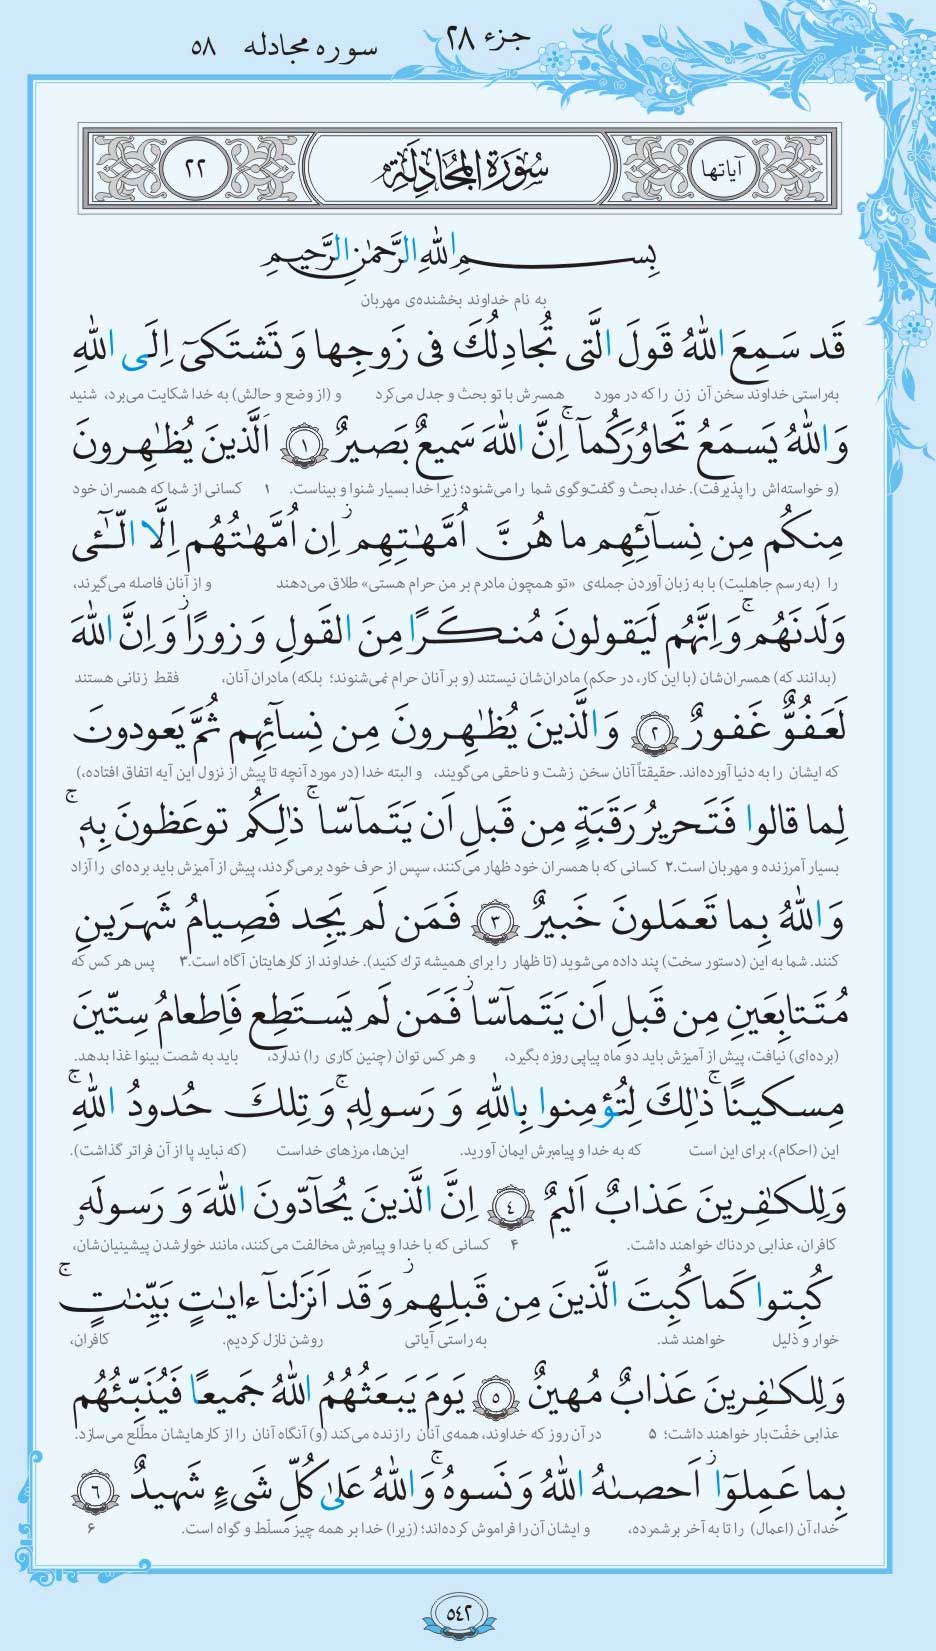 جزء ۲۸
سوره مجادله ۵۸
آیاتها
سُورَةُ المُجَادِلَةِ
۲۲
بِسمِ اللّٰهِ الرَّحمٰنِ الرَّحیمِ
به نام خداوند بخشنده‌ی مهربان
قَد سَمِعَ اللّٰهُ قَولَ الَّتی تُجادِلُكَ فی زَوجِها وَ تَشتَكیٓ اِلَی اللّٰهِ
به‌راستی خداوند سخن آن زن را که در مورد همسرش با تو بحث و جدل می‌کرد و (از وضع و حالش) به خدا شکایت می‌برد، شنید
وَاللّٰهُ یَسمَعُ تَحاوُرَكُمآ ۚ اِنَّ اللّٰهَ سَمیعٌ بَصیرٌ ﴿۱﴾ اَلَّذینَ یُظٰهِرونَ
(و خواسته‌اش را پذیرفت). خدا، بحث و گفت‌وگوی شما را می‌شنود؛ زیرا خدا بسیار شنوا و بیناست. ۱ کسانی از شما که همسران خود
مِنكُم مِن نِسآئِهِم ما هُنَّ اُمَّهٰتِهِم ۖ اِن اُمَّهٰتُهُم اِلَّا الّٰٓئی
را (به‌رسم جاهلیت) با به زبان آوردن جمله‌ی «تو همچون مادرم بر من حرام هستی» طلاق می‌دهند و از آنان فاصله می‌گیرند،
وَلَدنَهُم ۚ وَاِنَّهُم لَیَقولونَ مُنكَرًا مِنَ القَولِ وَ زورًا ۚ وَ اِنَّ اللّٰهَ
(بدانند که) همسران‌شان (با این کار، در حکم) مادران‌شان نیستند (و بر آنان حرام نمی‌شنوند؛ بلکه) مادران آنان، فقط زنانی هستند
لَعَفُوٌّ غَفورٌ ﴿۲﴾ وَالَّذینَ یُظٰهِرونَ مِن نِسآئِهِم ثُمَّ یَعودونَ
که ایشان را به دنیا آورده‌اند. حقیقتاً آنان سخن زشت و ناحقی می‌گویند، و البته خدا (در مورد آنچه تا پیش از نزول این آیه اتفاق افتاده،)
لِما قالوا فَتَحریرُ رَقَبَةٍ مِن قَبلِ اَن یَتَمآسّا ۚ ذٰلِكُم توعَظونَ بِهٖ ۚ
بسیار آمرزنده و مهربان است.۲ کسانی که با همسران خود ظهار می‌کنند، سپس از حرف خود برمی‌گردند، پیش از آمیزش باید برده‌ای را آزاد
وَاللّٰهُ بِما تَعمَلونَ خَبیرٌ ﴿۳﴾ فَمَن لَم یَجِد فَصِیامُ شَهرَینِ
کنند. شما به این (دستور سخت) پند داده می‌شوید (تا ظهار را برای همیشه ترك کنید). خداوند از کارهایتان آگاه است.۳ پس هر کس که
مُتَتابِعَینِ مِن قَبلِ اَن یَتَمآسّا ۖ فَمَن لَم یَستَطِع فَاِطعامُ سِتّینَ
(برده‌ای) نیافت، پیش از آمیزش باید دو ماه پیاپی روزه بگیرد، و هر کس توان (چنین کاری را) ندارد، باید به شصت بینوا غذا بدهد.
مِسكینًا ۚ ذٰلِكَ لِتُؤمِنوا بِاللّٰهِ وَ رَسولِهٖ ۚ وَ تِلكَ حُدودُ اللّٰهِ ۗ
این (احکام)، برای این است که به خدا و پیامبرش ایمان آورید. این‌ها، مرزهای خداست (که نباید پا از آن فراتر گذاشت).
وَلِلكٰفِرینَ عَذابٌ اَلیمٌ ﴿٤﴾ اِنَّ الَّذینَ یُحآدّونَ اللّٰهَ وَ رَسولَهٗ
کافران، عذابی دردناك خواهند داشت. ۴ کسانی که با خدا و پیامبرش مخالفت می‌کنند، مانند خوارشدن پیشینیان‌شان،
كُبِتوا كَما كُبِتَ الَّذینَ مِن قَبلِهِم ۚ وَ قَد اَنزَلنآ ءایاتٍ بَیِّنٰتٍ ۚ
خوار و ذلیل خواهند شد. به‌راستی آیاتی روشن نازل کردیم. کافران،
وَلِلكٰفِرینَ عَذابٌ مُهینٌ ﴿٥﴾ یَومَ یَبعَثُهُمُ اللّٰهُ جَمیعًا فَیُنَبِّئُهُم
عذابی خفّت‌بار خواهند داشت؛ ۵ در آن روز که خداوند، همه‌ی آنان را زنده می‌کند (و) آنگاه آنان را از کارهایشان مطّلع می‌سازد.
بِما عَمِلوٓا ۚ اَحصىٰهُ اللّٰهُ وَ نَسوهُ ۚ وَاللّٰهُ عَلىٰ كُلِّ شَیءٍ شَهیدٌ ﴿٦﴾
خدا، آن (اعمال) را تا به آخر برشمرده، و ایشان آن را فراموش کرده‌اند؛ (زیرا) خدا بر همه چیز مسلّط و گواه است. ۶
٥٤٢